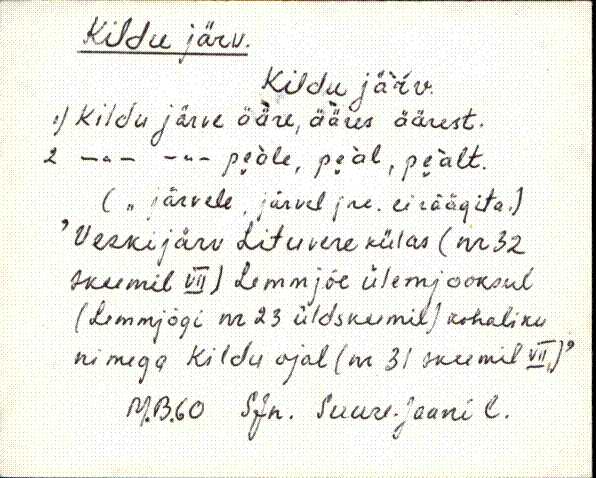 Kildu järv.
Kildu jä̀rv.
1) Kildu järve ää̀re, ää̀res äärest.
2 —"— —"— pe̮àle, pe̮àl, pe̮àlt.
(„ järvele, järvel jne. ei räägita.)
’Veskijärv Lituvere külas (nr 32
skeemil VII) Lemmjõe ülemjooksul
(Lemmjõgi nr 23 üldskeemil) kohaliku
nimega Kildu ojal (nr 31 skeemil VII)’
M.B.60 Sjn. Suure-Jaani l.